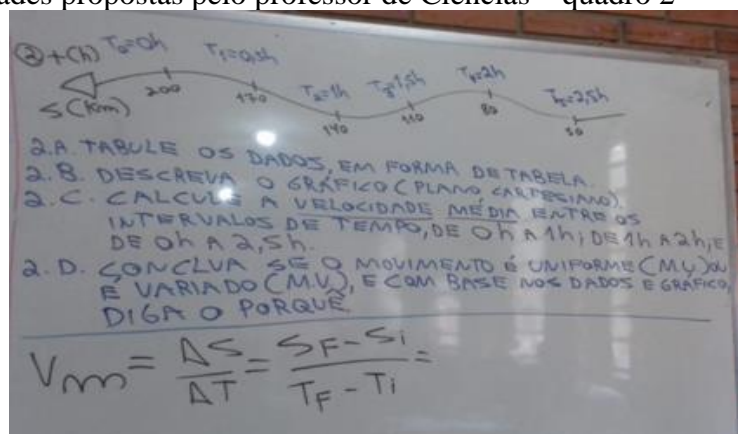 ades propostas pelo professor de Ciências – quadro 2
② t(h) T₀=0h T₁=0,5h T₂=1h T₃=1,5h T₄=2h T₅=2,5h
S(Km) 200 170 140 110 80 50
2.A. TABULE OS DADOS, EM FORMA DE TABELA.
2.B. DESCREVA O GRÁFICO (PLANO CARTESIANO).
2.C. CALCULE A VELOCIDADE MÉDIA ENTRE OS
INTERVALOS DE TEMPO, DE 0h A 1h; DE 1h A 2h, E
DE 0h A 2,5h.
2.D. CONCLUA SE O MOVIMENTO É UNIFORME (M.U) OU
É VARIADO (M.V), E COM BASE NOS DADOS E GRÁFICO,
DIGA O PORQUÊ
Vm = ΔS/ΔT = SF-Si/TF-Ti =